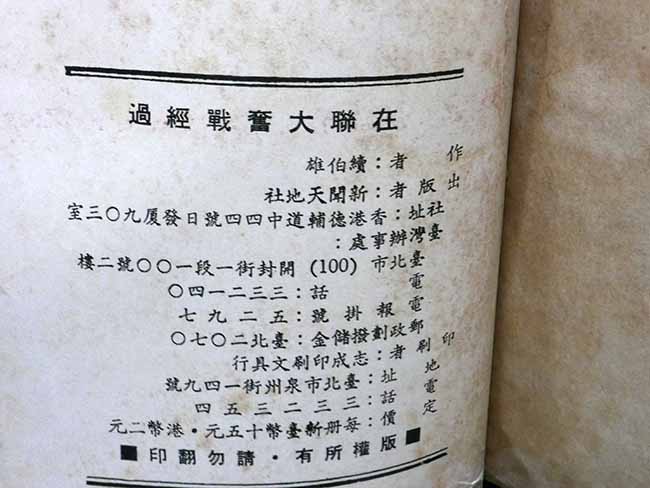 在聯大奮戰經過
作者：續伯雄
出版者：新聞天地社
社址：香港德輔道中四四號日發厦九〇三室
臺灣辦事處：
臺北市 (100) 開封街一段一〇〇號二樓
電話：三三二一四〇
電報掛號：五二九七
郵政劃撥儲金：臺北二〇七〇
印刷者：志成印刷文具行
地址：臺北市泉州街一四九號
電話：三三二三五四
定價：每册新臺幣十五元・港幣二元
■版權所有・請勿翻印■